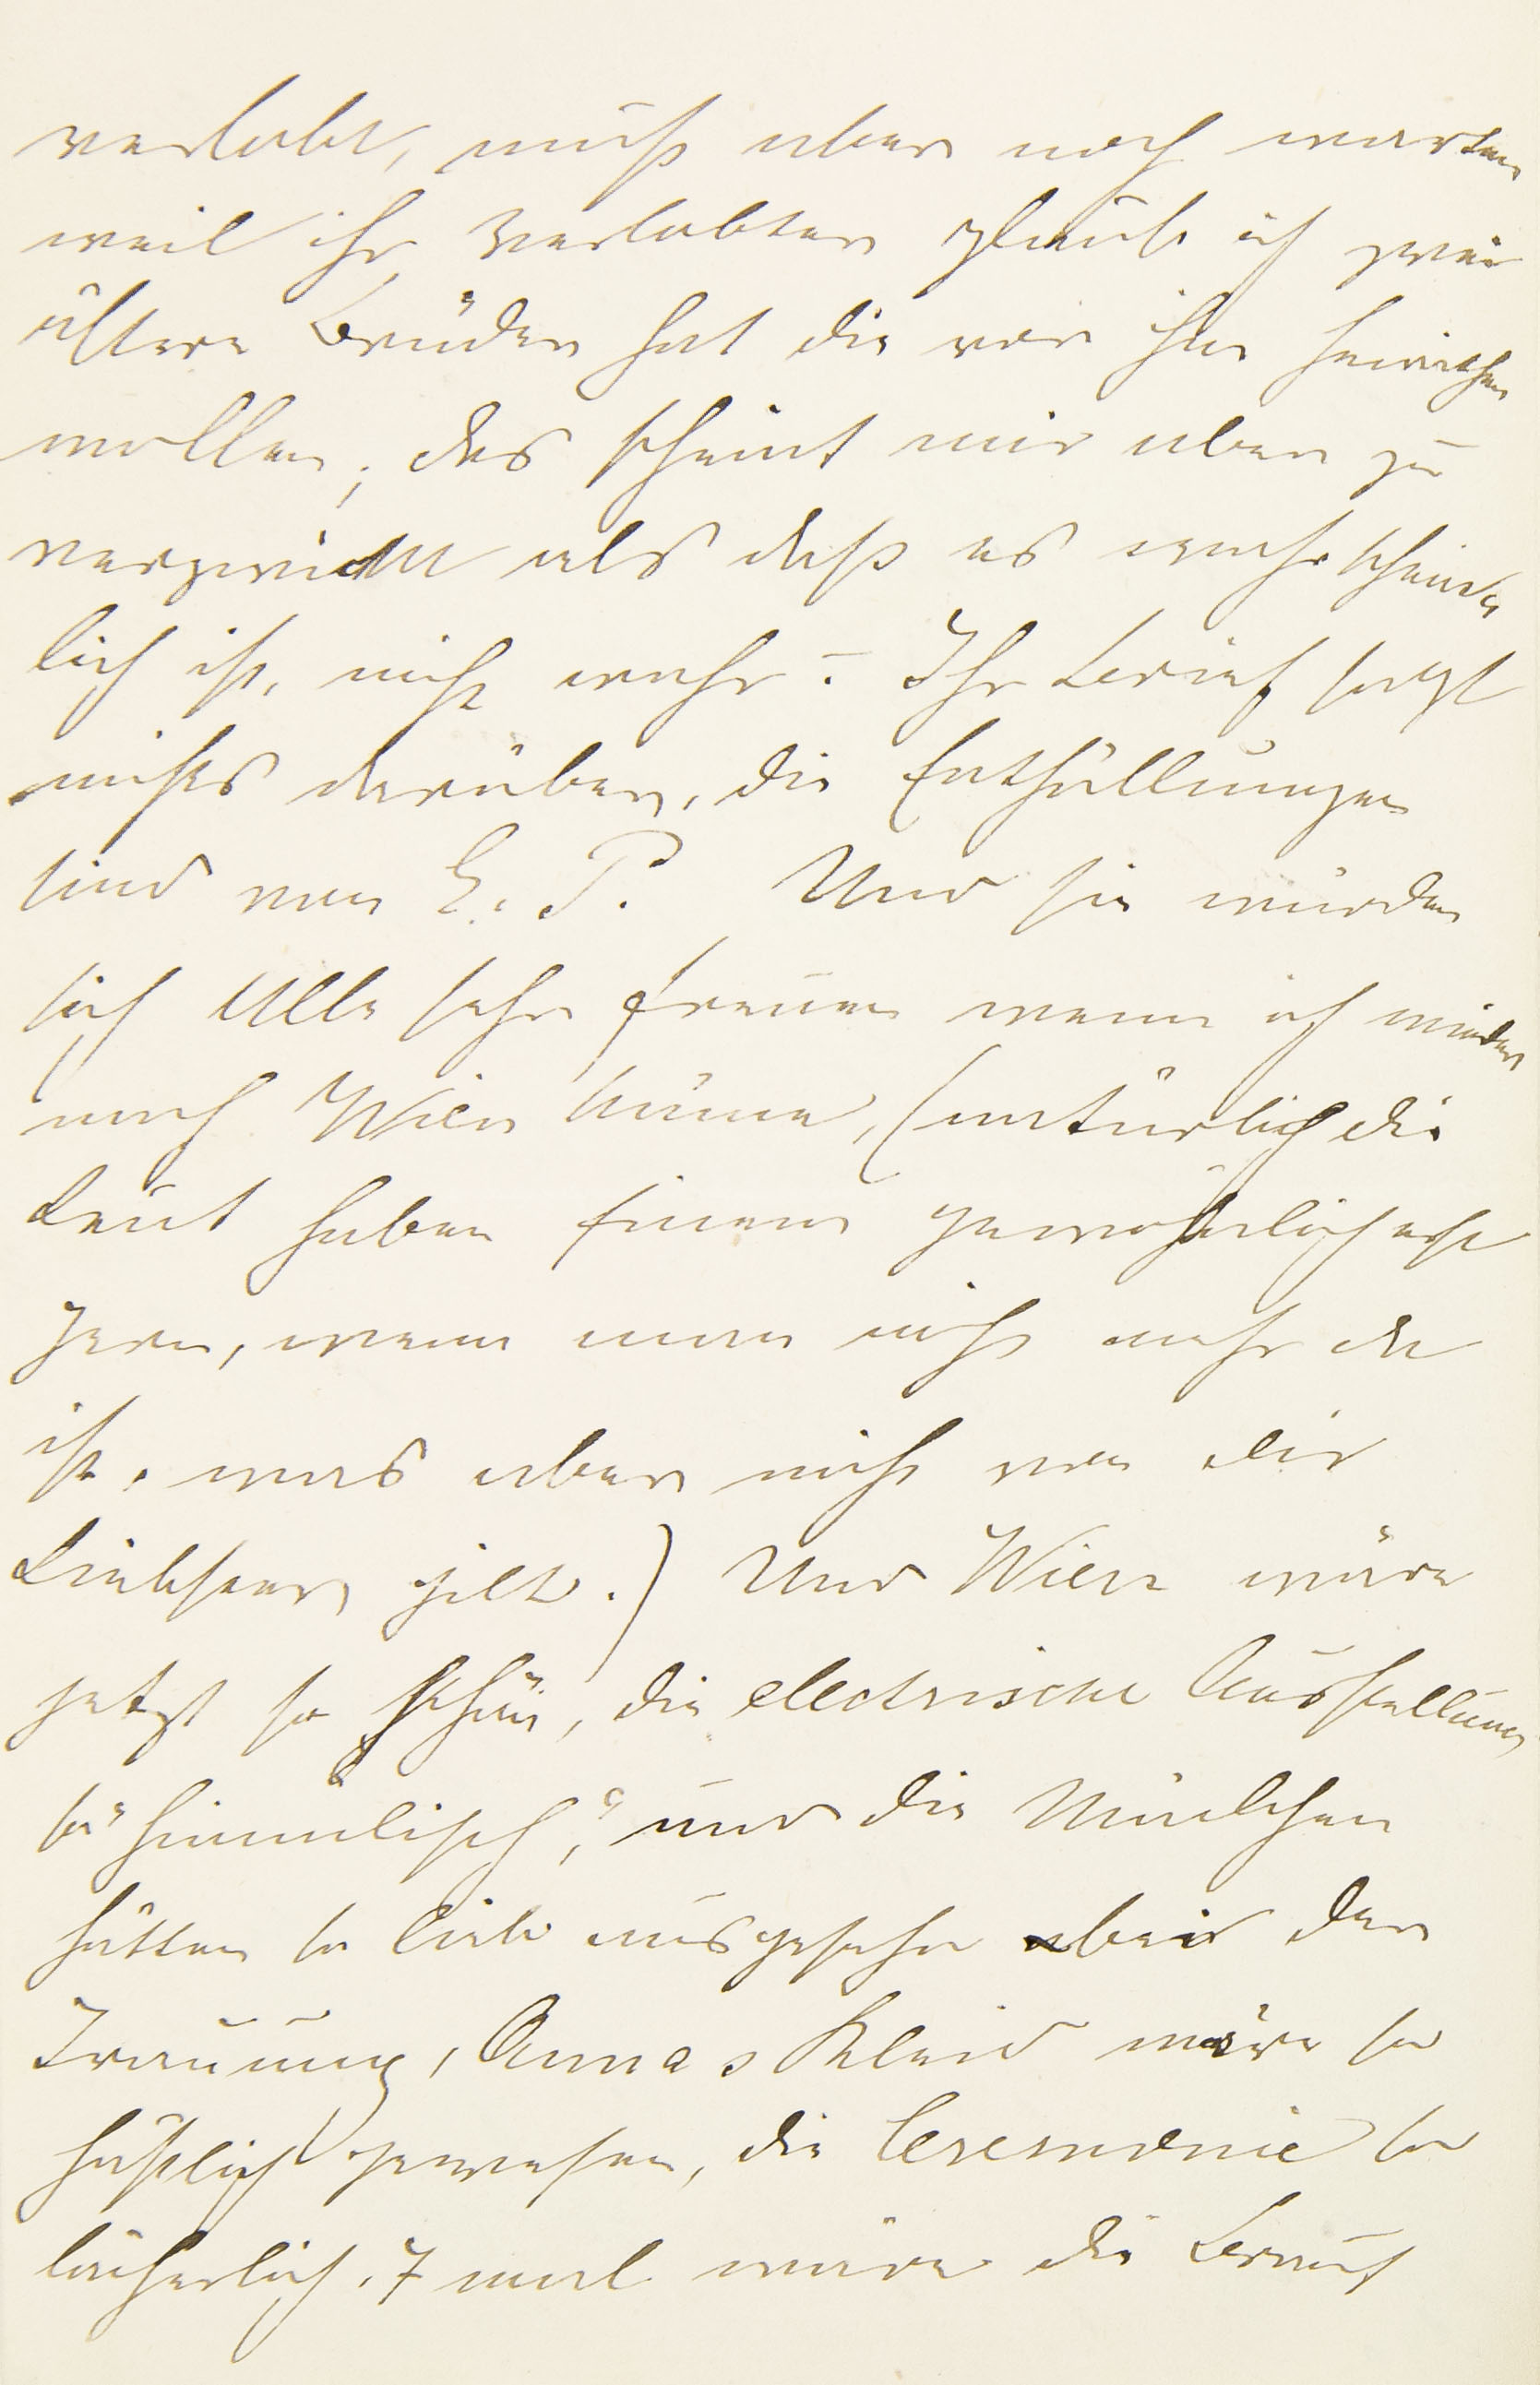 verlobt, muß aber noch warten
weil ihr Verlobter glaub ich zwei
ältere Brüder hat die vor ihm heirathen
wollen; das scheint mir aber zu
verzwickt als daß es wahrschein
lich ist, nicht wahr? Ihr Brief sagt
nichts darüber, die Enthüllungen
sind von E. P. Und sie würden
sich Alle sehr freuen wenn ich wieder
nach Wien käme, (natürlich die
Leut haben Einem gewöhnlich erst
gern, wenn man nicht mehr da
ist. was aber nicht von dir
Liebster gilt.) Und Wien wäre
jetzt so schön, die electrische Ausstellung
so "himmlisch," und die Mädchen
hätten so lieb ausgesehn bei der
Trauung, Annas Kleid wäre so
häßlich gewesen, die Ceremonie so
lächerlich. 7 mal wäre die Braut